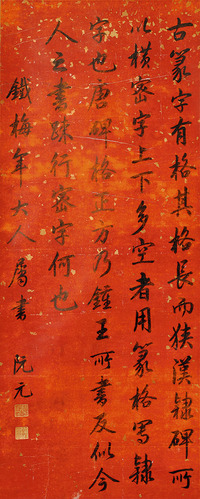 古篆字有格其格長而狹漢隸碑所
以橫密字上下多空者用篆格寫隸
字也唐碑格正方乃鍾王所書反似今
人之書疎行密字何也
鐵梅年大人屬書 阮元